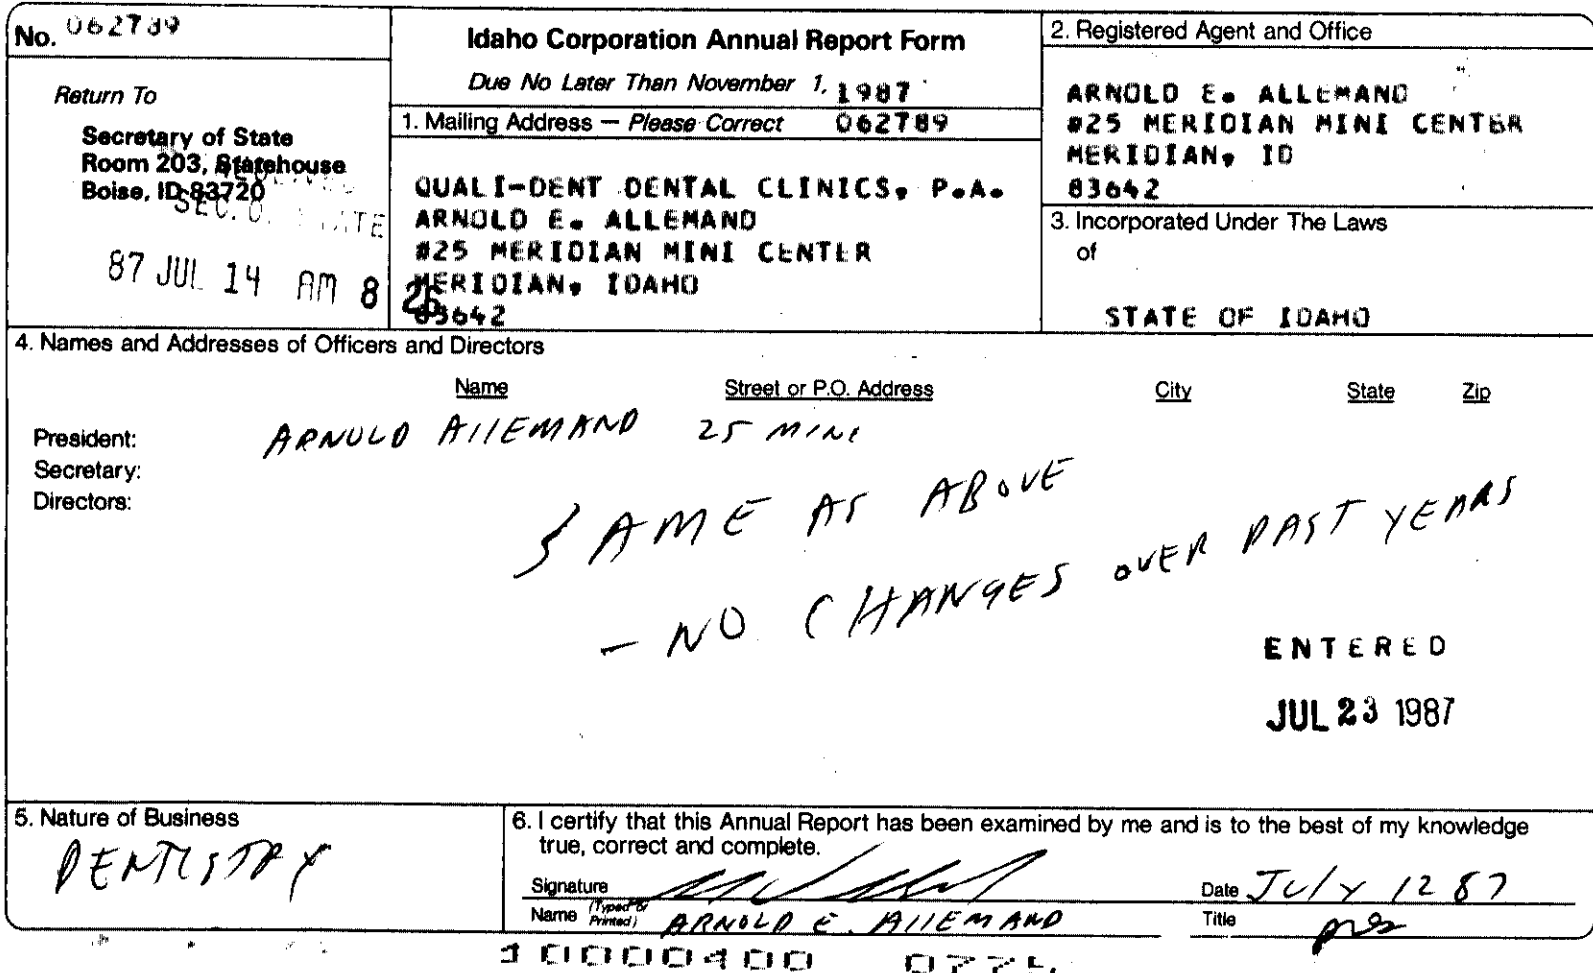 No. 062789
Idaho Corporation Annual Report Form
Due No Later Than November 1, 1987
Return To
Secretary of State
Room 203, Statehouse
Boise, ID 83720
SEC. O STATE
87 JUL 14 AM 8 26
1. Mailing Address — Please Correct 062789
QUALI-DENT DENTAL CLINICS, P.A.
ARNOLD E. ALLEMAND
#25 MERIDIAN MINI CENTER
MERIDIAN, IDAHO
83642
2. Registered Agent and Office
ARNOLD E. ALLEMAND
#25 MERIDIAN MINI CENTER
MERIDIAN, ID
83642
3. Incorporated Under The Laws
of
STATE OF IDAHO
4. Names and Addresses of Officers and Directors
Name Street or P.O. Address City State Zip
President: ARNOLD AllEMAND 25 MINI
Secretary:
Directors:
SAME AS ABOVE
- NO CHANGES OVER PAST YEARS
ENTERED
JUL 23 1987
5. Nature of Business
DENTISTRY
6. I certify that this Annual Report has been examined by me and is to the best of my knowledge
true, correct and complete.
Signature
Date JULY 12 87
Name (Typed or Printed) ARNOLD E. AllEMAND
Title pres